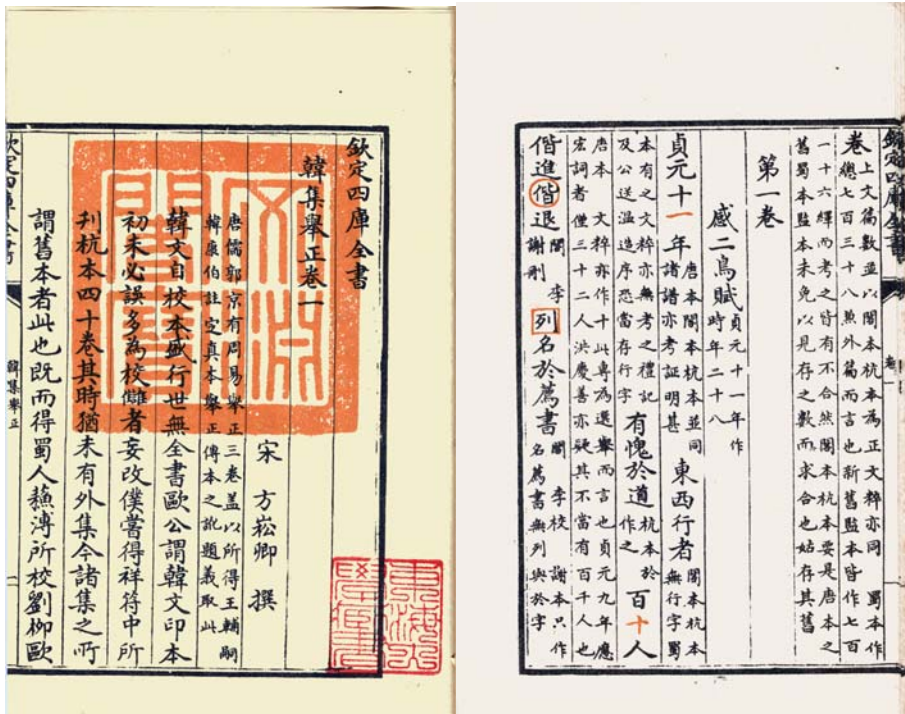 欽定四庫全書
韓集舉正卷一
宋 方崧卿 撰
唐儒郭京有周易舉正三卷盖以所得王輔嗣
韓康伯註定真本舉正傳本之訛題義取此
韓文自校本盛行世無全書歐公謂韓文印本
初未必誤多為校讎者妄改僕嘗得祥符中所
刋杭本四十卷其時猶未有外集今諸集之所
謂舊本者此也既而得蜀人蘇溥所校劉柳歐
欽定四庫全書 韓集舉正 一
文源閣寶
欽定四庫全書 卷一
上文篇數並以閣本杭本為正文粹亦同 蜀本作
卷總七百三十八兼外篇而言也新舊監本皆作七百
一十六繹而考之皆有不合然閣本杭本要是唐本之
舊蜀本監本未免以見存之數而求合也姑存其舊
第一卷
感二鳥賦 貞元十一年作 時年二十八
貞元十一年 唐本閣本杭本並同 諸譜亦考証明甚 東西行者 閣本杭本 無行字蜀
本有之文粹亦無考之禮記 及公送温造序恐當存行字 有愧於道 杭本於 作之 百十人
唐本 文粹亦作十此專為選舉而言也貞元九年應
宏詞者僅三十二人洪慶善亦疑其不當有百千人也
偕進偕退 閣 李 謝刪 列名於薦書 閣 李校 謝本只作 名薦書無列與於字